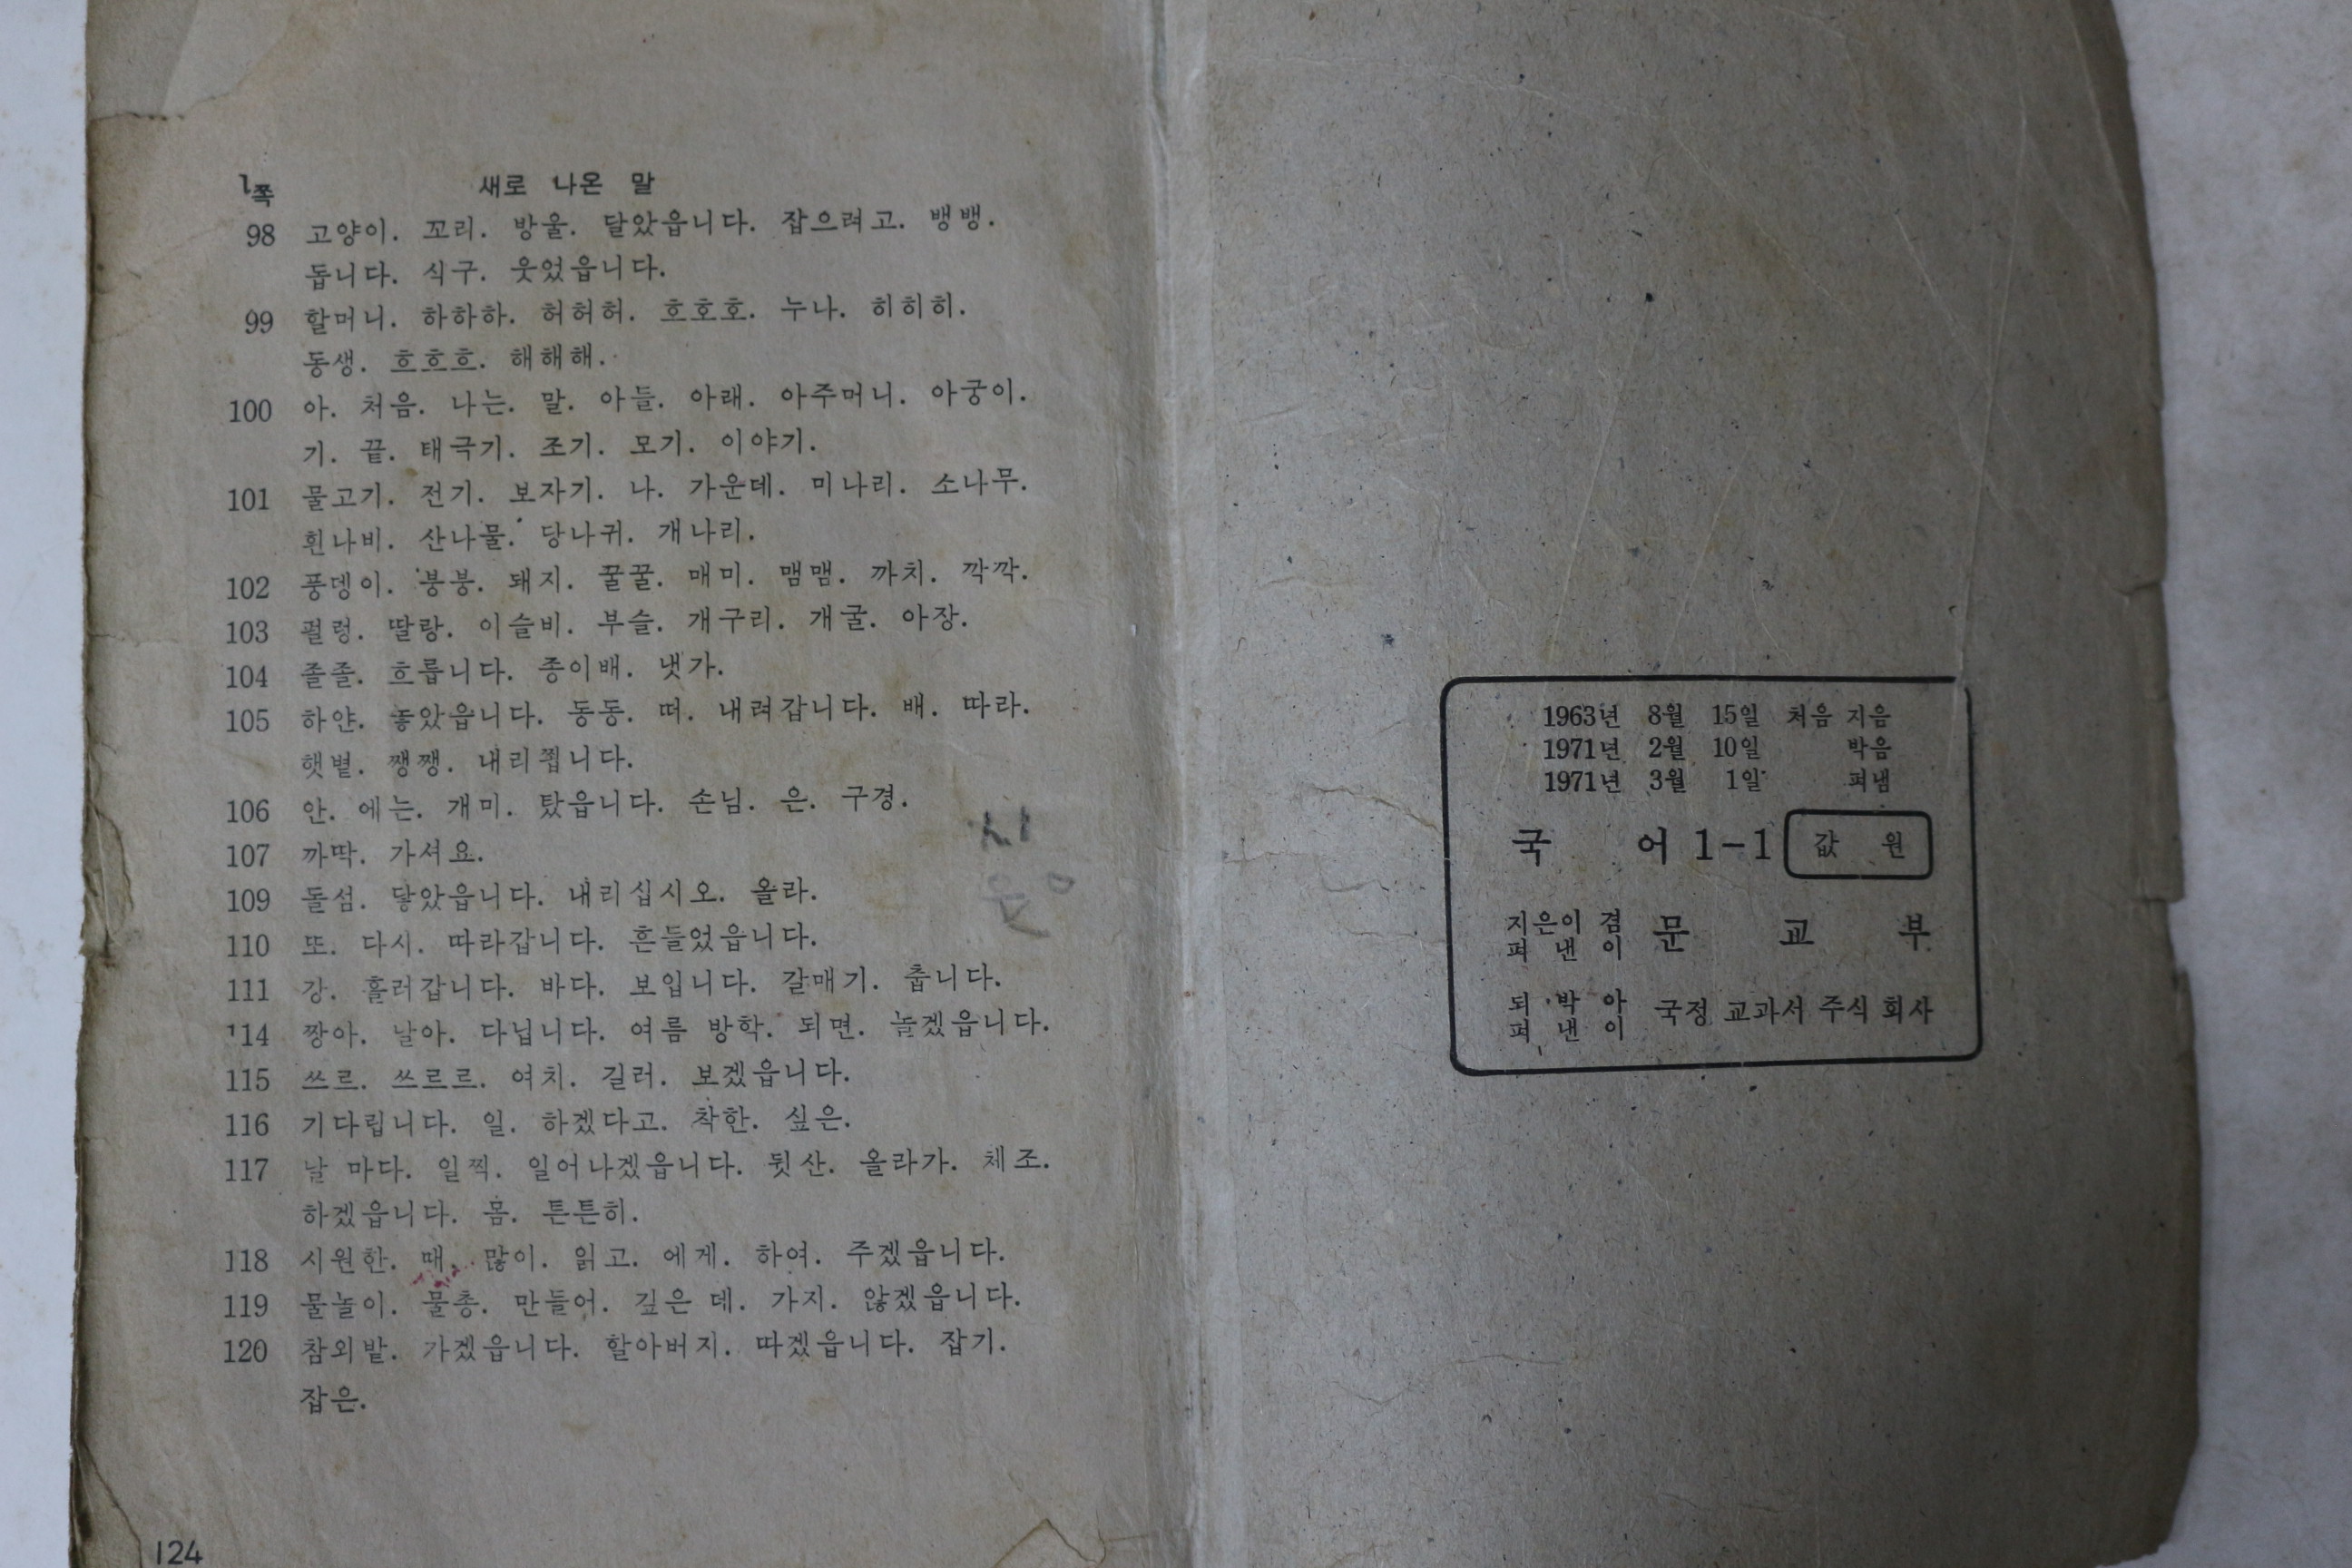 쪽 새로 나온 말
98 고양이. 꼬리. 방울. 달았읍니다. 잡으려고. 뱅뱅.
돕니다. 식구. 웃었읍니다.
99 할머니. 하하하. 허허허. 호호호. 누나. 히히히.
동생. 흐흐흐. 해해해.
100 아. 처음. 나는. 말. 아들. 아래. 아주머니. 아궁이.
기. 끝. 태극기. 조기. 모기. 이야기.
101 물고기. 전기. 보자기. 나. 가운데. 미나리. 소나무.
흰나비. 산나물. 당나귀. 개나리.
102 풍뎅이. 붕붕. 돼지. 꿀꿀. 매미. 맴맴. 까치. 깍깍.
103 펄렁. 딸랑. 이슬비. 부슬. 개구리. 개굴. 아장.
104 졸졸. 흐릅니다. 종이배. 냇가.
105 하얀. 놓았읍니다. 동동. 떠. 내려갑니다. 배. 따라.
햇볕. 쨍쨍. 내리쬡니다.
106 안. 에는. 개미. 탔읍니다. 손님. 은. 구경.
107 까딱. 가셔요.
109 돌섬. 닿았읍니다. 내리십시오. 올라.
110 또. 다시. 따라갑니다. 흔들었읍니다.
111 강. 흘러갑니다. 바다. 보입니다. 갈매기. 춥니다.
114 짱아. 날아. 다닙니다. 여름 방학. 되면. 놀겠읍니다.
115 쓰르. 쓰르르. 여치. 길러. 보겠읍니다.
116 기다립니다. 일. 하겠다고. 착한. 싶은.
117 날 마다. 일찍. 일어나겠읍니다. 뒷산. 올라가. 체조.
하겠읍니다. 몸. 튼튼히.
118 시원한. 때. 많이. 읽고. 에게. 하여. 주겠읍니다.
119 물놀이. 물총. 만들어. 깊은 데. 가지. 않겠읍니다.
120 참외밭. 가겠읍니다. 할아버지. 따겠읍니다. 잡기.
잡은.
124
1963년 8월 15일 처음 지음
1971년 2월 10일 박음
1971년 3월 1일 펴냄
국 어 1-1 값 원
지은이 겸
펴 낸 이 문 교 부
되 박 아
펴 낸 이 국정 교과서 주식 회사